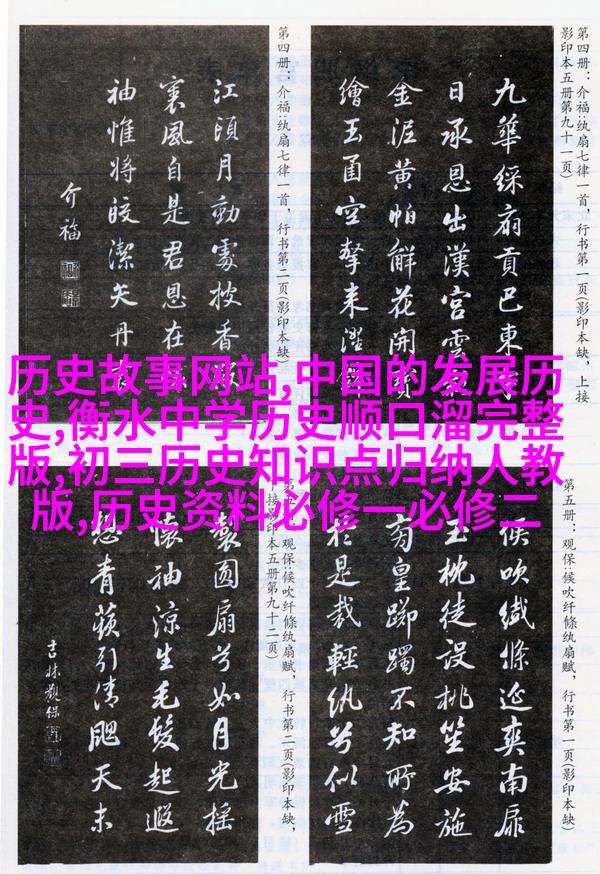 历史故事网站,中国的发展历
史,衡水中学历史顺口溜完整
版,初三历史知识点归纳人教
版,历史资料必修一必修二
第四册：介福:纨扇七律一首，行书第一页(影印本缺)，上接
影印本五册第九十一页)
九華綵扇貢巴東
日承恩出漢宮雲
金泥黄帕解花開
繪玉函空擎来濯
第四册：介福:纨扇七律一首，行书第二页(影印本缺)
江頭月動處披香
裏風自是君恩在
袖惟将皎潔矢丹
介福
第五册：观保:候吹纤絛纨扇赋，行书第一页(影印本缺)
候吹纖絛延爽南扉
玉枕徒設桃笙安施
皇躑躅不知所為
於是裁輕纨兮似雪
观保:候吹纤絛纨扇赋，行书第二页(影印本缺，
下接影印本五册第九十二页)
製圆扇兮如月光摇
懷袖凉生毛髮起遐
想青蘋引清颸天末
吉林觀保